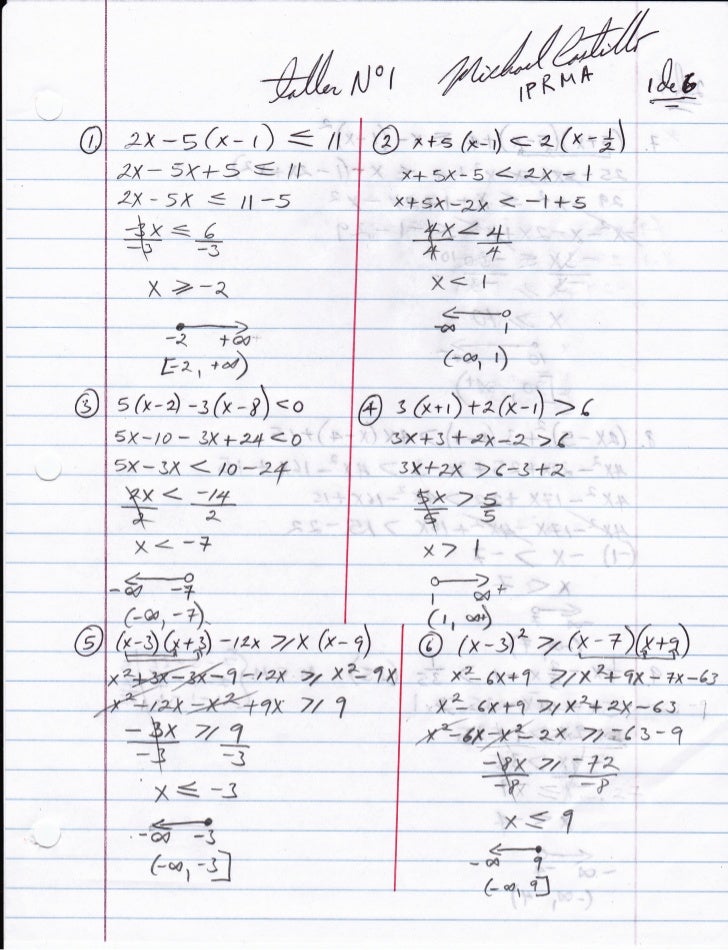 taller Nº1 Michael Castillo
IPRMA
1 de 6
① 2x-5(x-1) ≤ 11
2x-5x+5 ≤ 11
2x-5x ≤ 11-5
-3x/-3 ≤ 6/-3
x ≥ -2
-2 +∞
[-2, +∞)
② x+5(x-1) < 2(x-1/2)
x+5x-5 < 2x-1
x+5x-2x < -1+5
4x/4 < 4/4
x < 1
-∞ 1
(-∞, 1)
③ 5(x-2)-3(x-8) < 0
5x-10-3x+24 < 0
5x-3x < 10-24
2x/2 < -14/2
x < -7
-∞ -7
(-∞, -7)
④ 3(x+1)+2(x-1) > 6
3x+3+2x-2 > 6
3x+2x > 6-3+2
5x/5 > 5/5
x > 1
1 ∞+
(1, ∞+)
⑤ (x-3)(x+3)-12x ≥ x(x-9)
x²+3x-3x-9-12x ≥ x²-9x
x²-12x-x²+9x ≥ 9
-3x/-3 ≥ 9/-3
x ≤ -3
-∞ -3
(-∞, -3]
⑥ (x-3)² ≥ (x-7)(x+9)
x²-6x+9 ≥ x²+9x-7x-63
x²-6x+9 ≥ x²+2x-63
x²-6x-x²-2x ≥ -63-9
-8x/-8 ≥ -72/-8
x ≤ 9
-∞ 9
(-∞, 9]